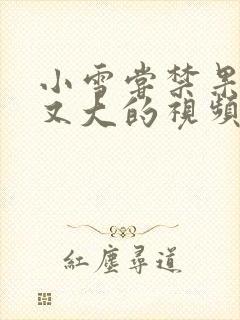 小雪嘗禁果
又大的視頻
紅塵尋道